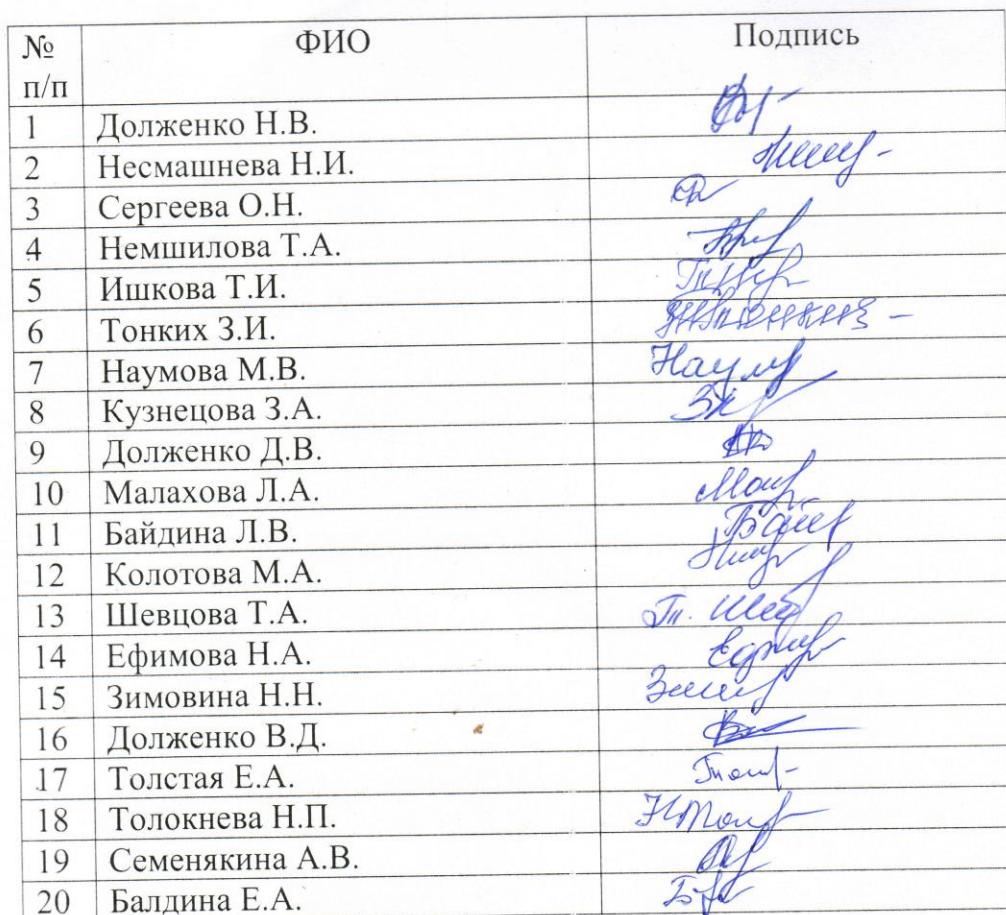 № п/п ФИО Подпись
1 Долженко Н.В.
2 Несмашнева Н.И.
3 Сергеева О.Н.
4 Немшилова Т.А.
5 Ишкова Т.И.
6 Тонких З.И.
7 Наумова М.В.
8 Кузнецова З.А.
9 Долженко Д.В.
10 Малахова Л.А.
11 Байдина Л.В.
12 Колотова М.А.
13 Шевцова Т.А.
14 Ефимова Н.А.
15 Зимовина Н.Н.
16 Долженко В.Д.
17 Толстая Е.А.
18 Толокнева Н.П.
19 Семенякина А.В.
20 Балдина Е.А.